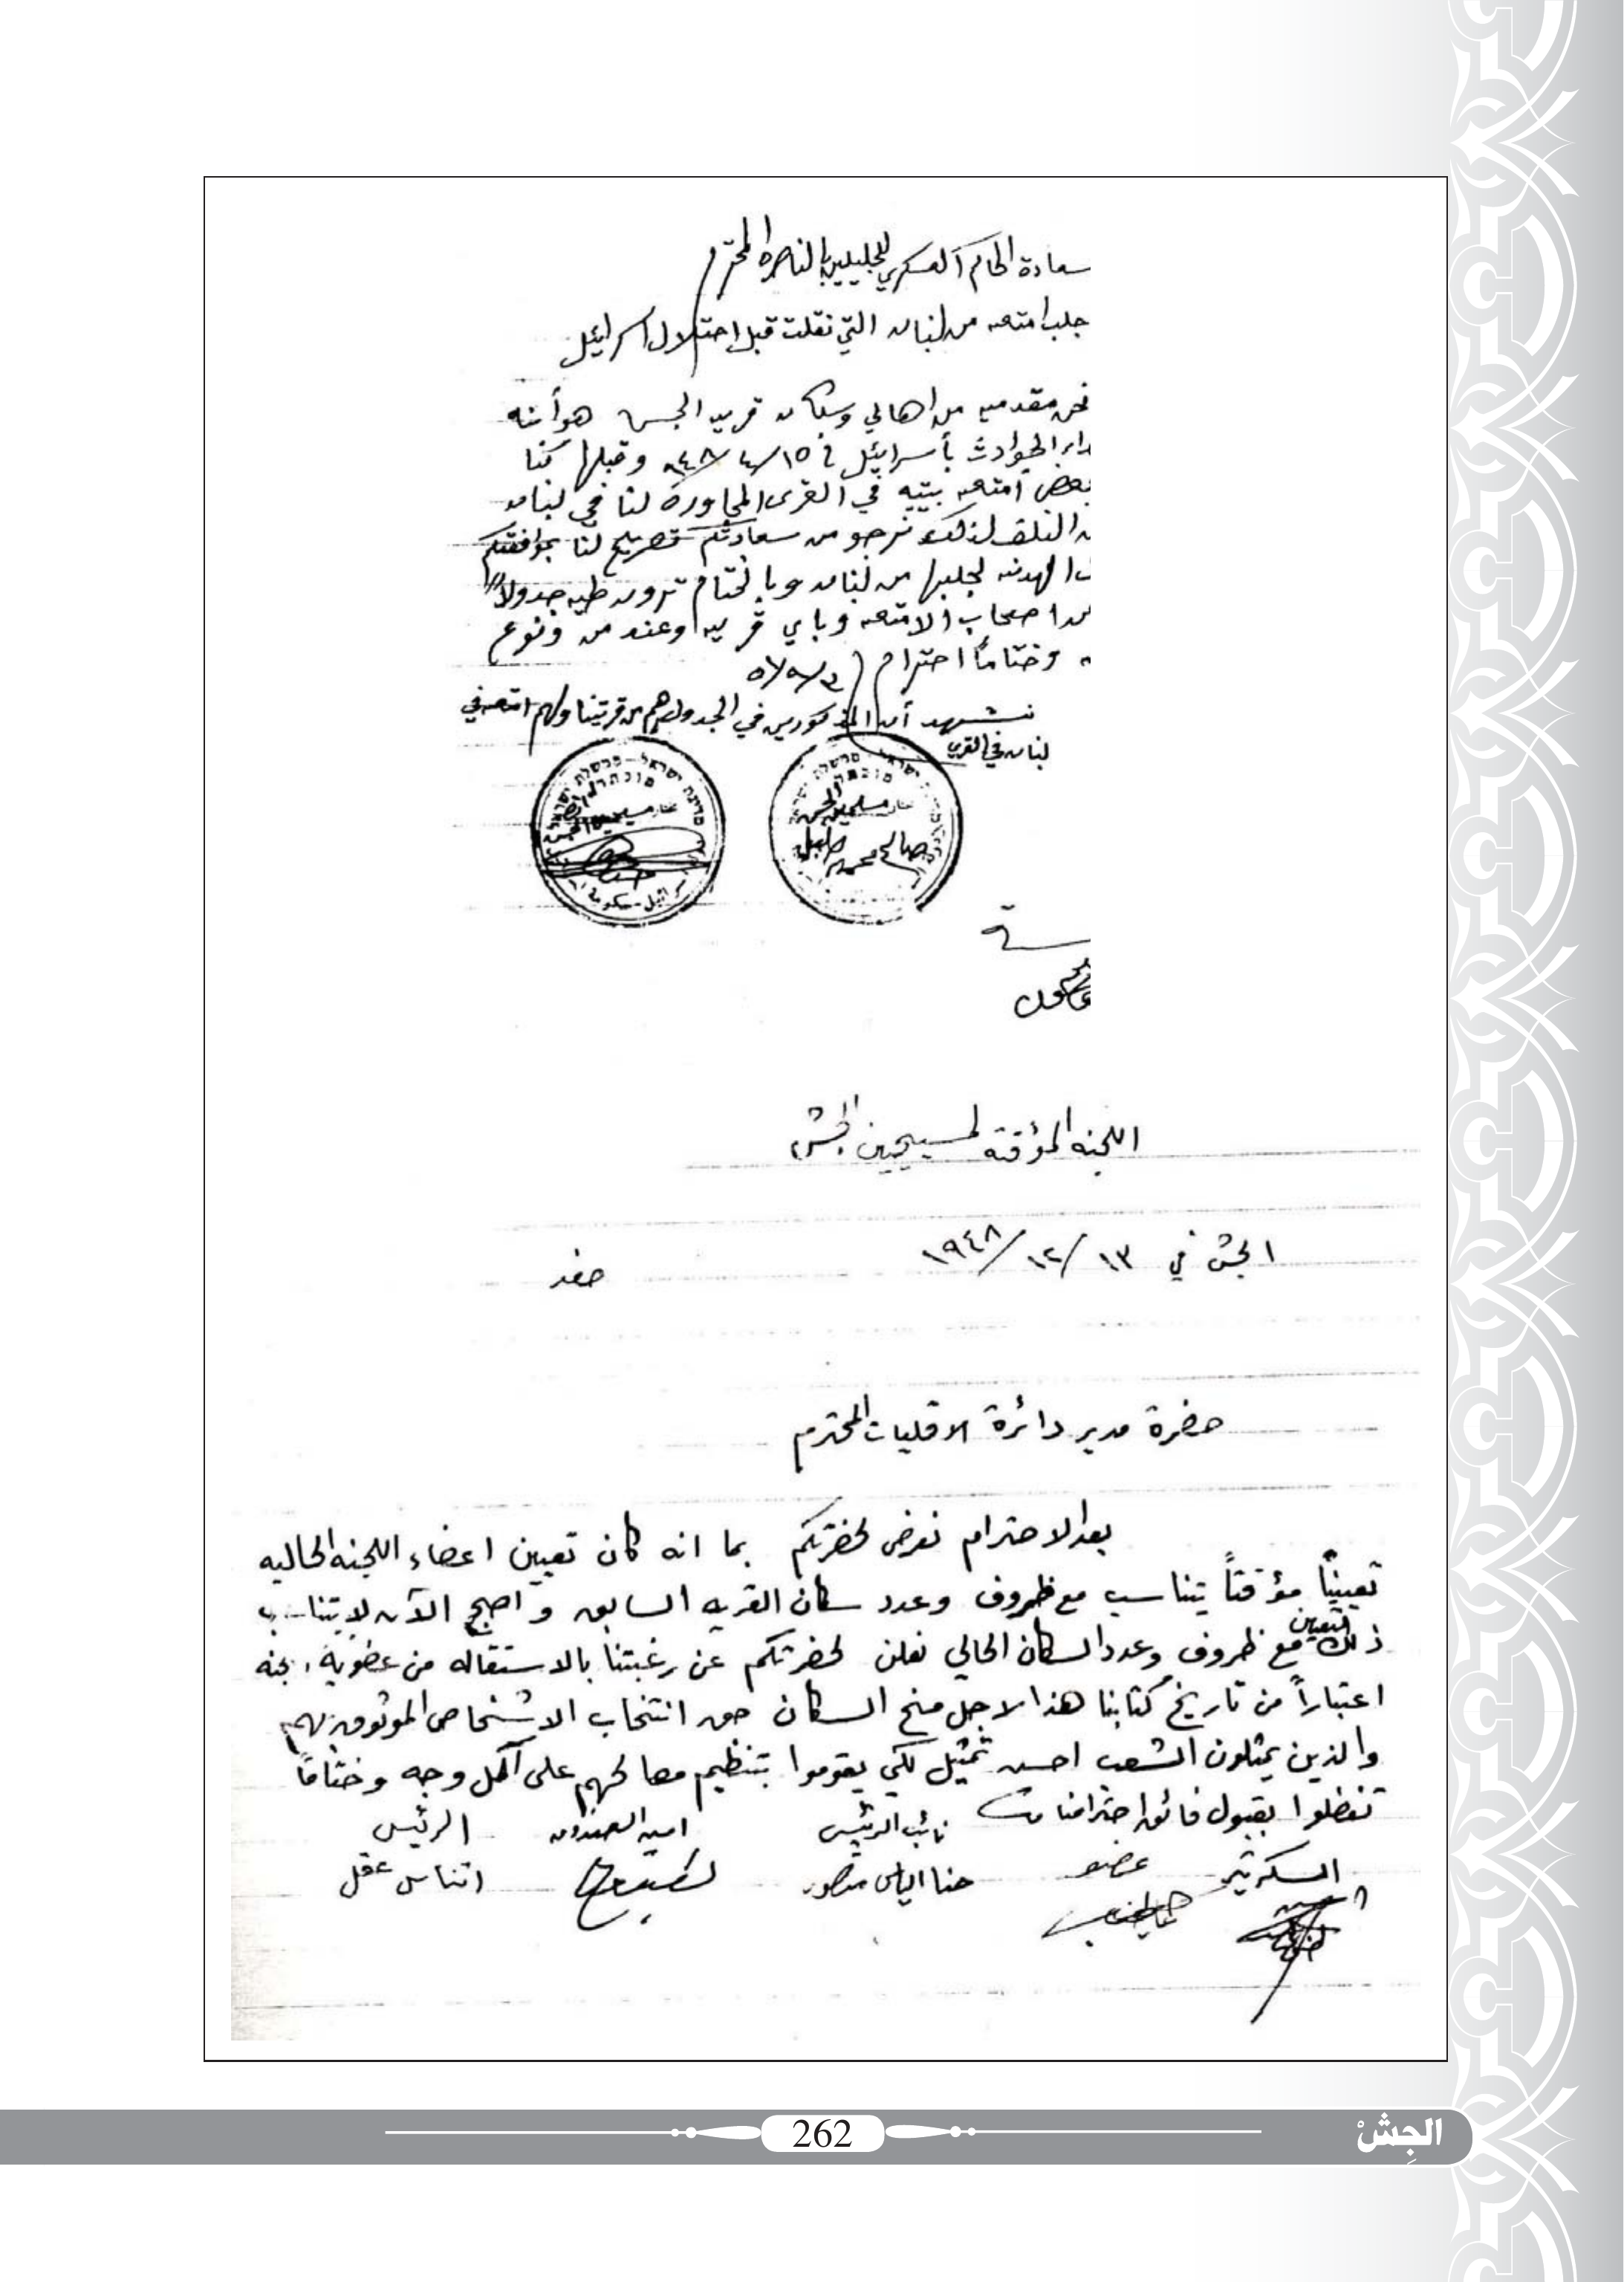 سعادة الحاكم العسكري للجليلين بالناصره المحترم
جلب امتعه من لبنان التي نقلت قبل احتلال اسرائيل
نحن مقدميه من اهالي وسكان قريه الجش هو أنه
الحوادث بأسرائيل في ١٥/٤/٩٤٨ وقبلها كنا
بعض امتعه بيتيه في القرى المجاورة لنا في لبنان
التلف لذلك نرجو من سعادتكم تصريح لنا بموافقتكم
الهدنه لجلبها من لبنان وبالختام ترون طيه جدولاً
اصحاب الامتعه وباي قريه وعند من ونوع
وختاماً احترام
نشهد أن المذكورين في الجدول هم من قريتنا ولهم امتعه في
لبنان في القرى
مختار مسيحيين الجش
مختار مسلمين الجش
صالح محمد
اللجنه المؤقتة لمسيحيين الجش
الجش في ١٣/١٢/١٩٤٨
صفد
حضرة مدير دائرة الاقليات المحترم
بعد الاحترام نعرض لحضرتكم بما انه كان تعيين اعضاء اللجنه الحاليه
تعييناً مؤقتاً يتناسب مع ظروف وعدد سكان القريه السابق واصبح الآن لا يتناسب
ذلك التعيين مع ظروف وعدد السكان الحالي نعلن لحضرتكم عن رغبتنا بالاستقاله من عضوية
اعتباراً من تاريخ كتابنا هذا لاجل منح السكان حق انتخاب الاشخاص الموثوق بهم
والذين يمثلون الشعب احسن تمثيل لكي يقوموا بتنظيم مصالحهم على اكمل وجه وختاماً
تفضلوا بقبول فائق احترامنا
السكرتير عضو نائب الرئيس امين الصندوق الرئيس
حنا الياس منصور اتناس عقل
262
الجِشْ